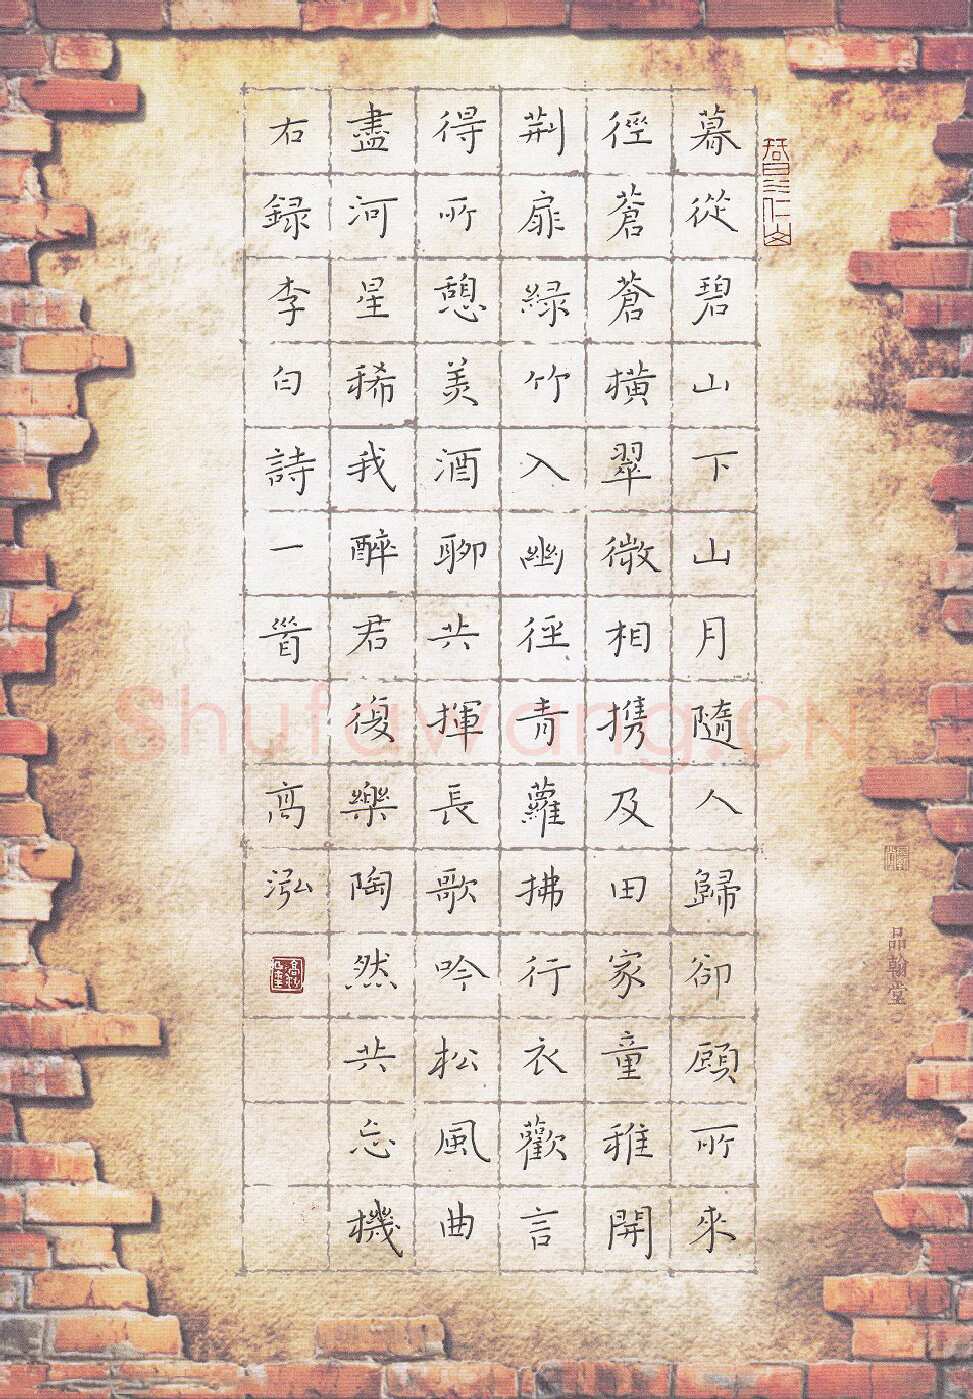 暮從碧山下山月隨人歸卻顧所來
徑蒼蒼橫翠微相携及田家童稚開
荆扉緑竹入幽徑青蘿拂行衣歡言
得所憩美酒聊共揮長歌吟松風曲
盡河星稀我醉君復樂陶然共忘機
右録李白詩一首 高泓
品翰堂
Shufawang.CN